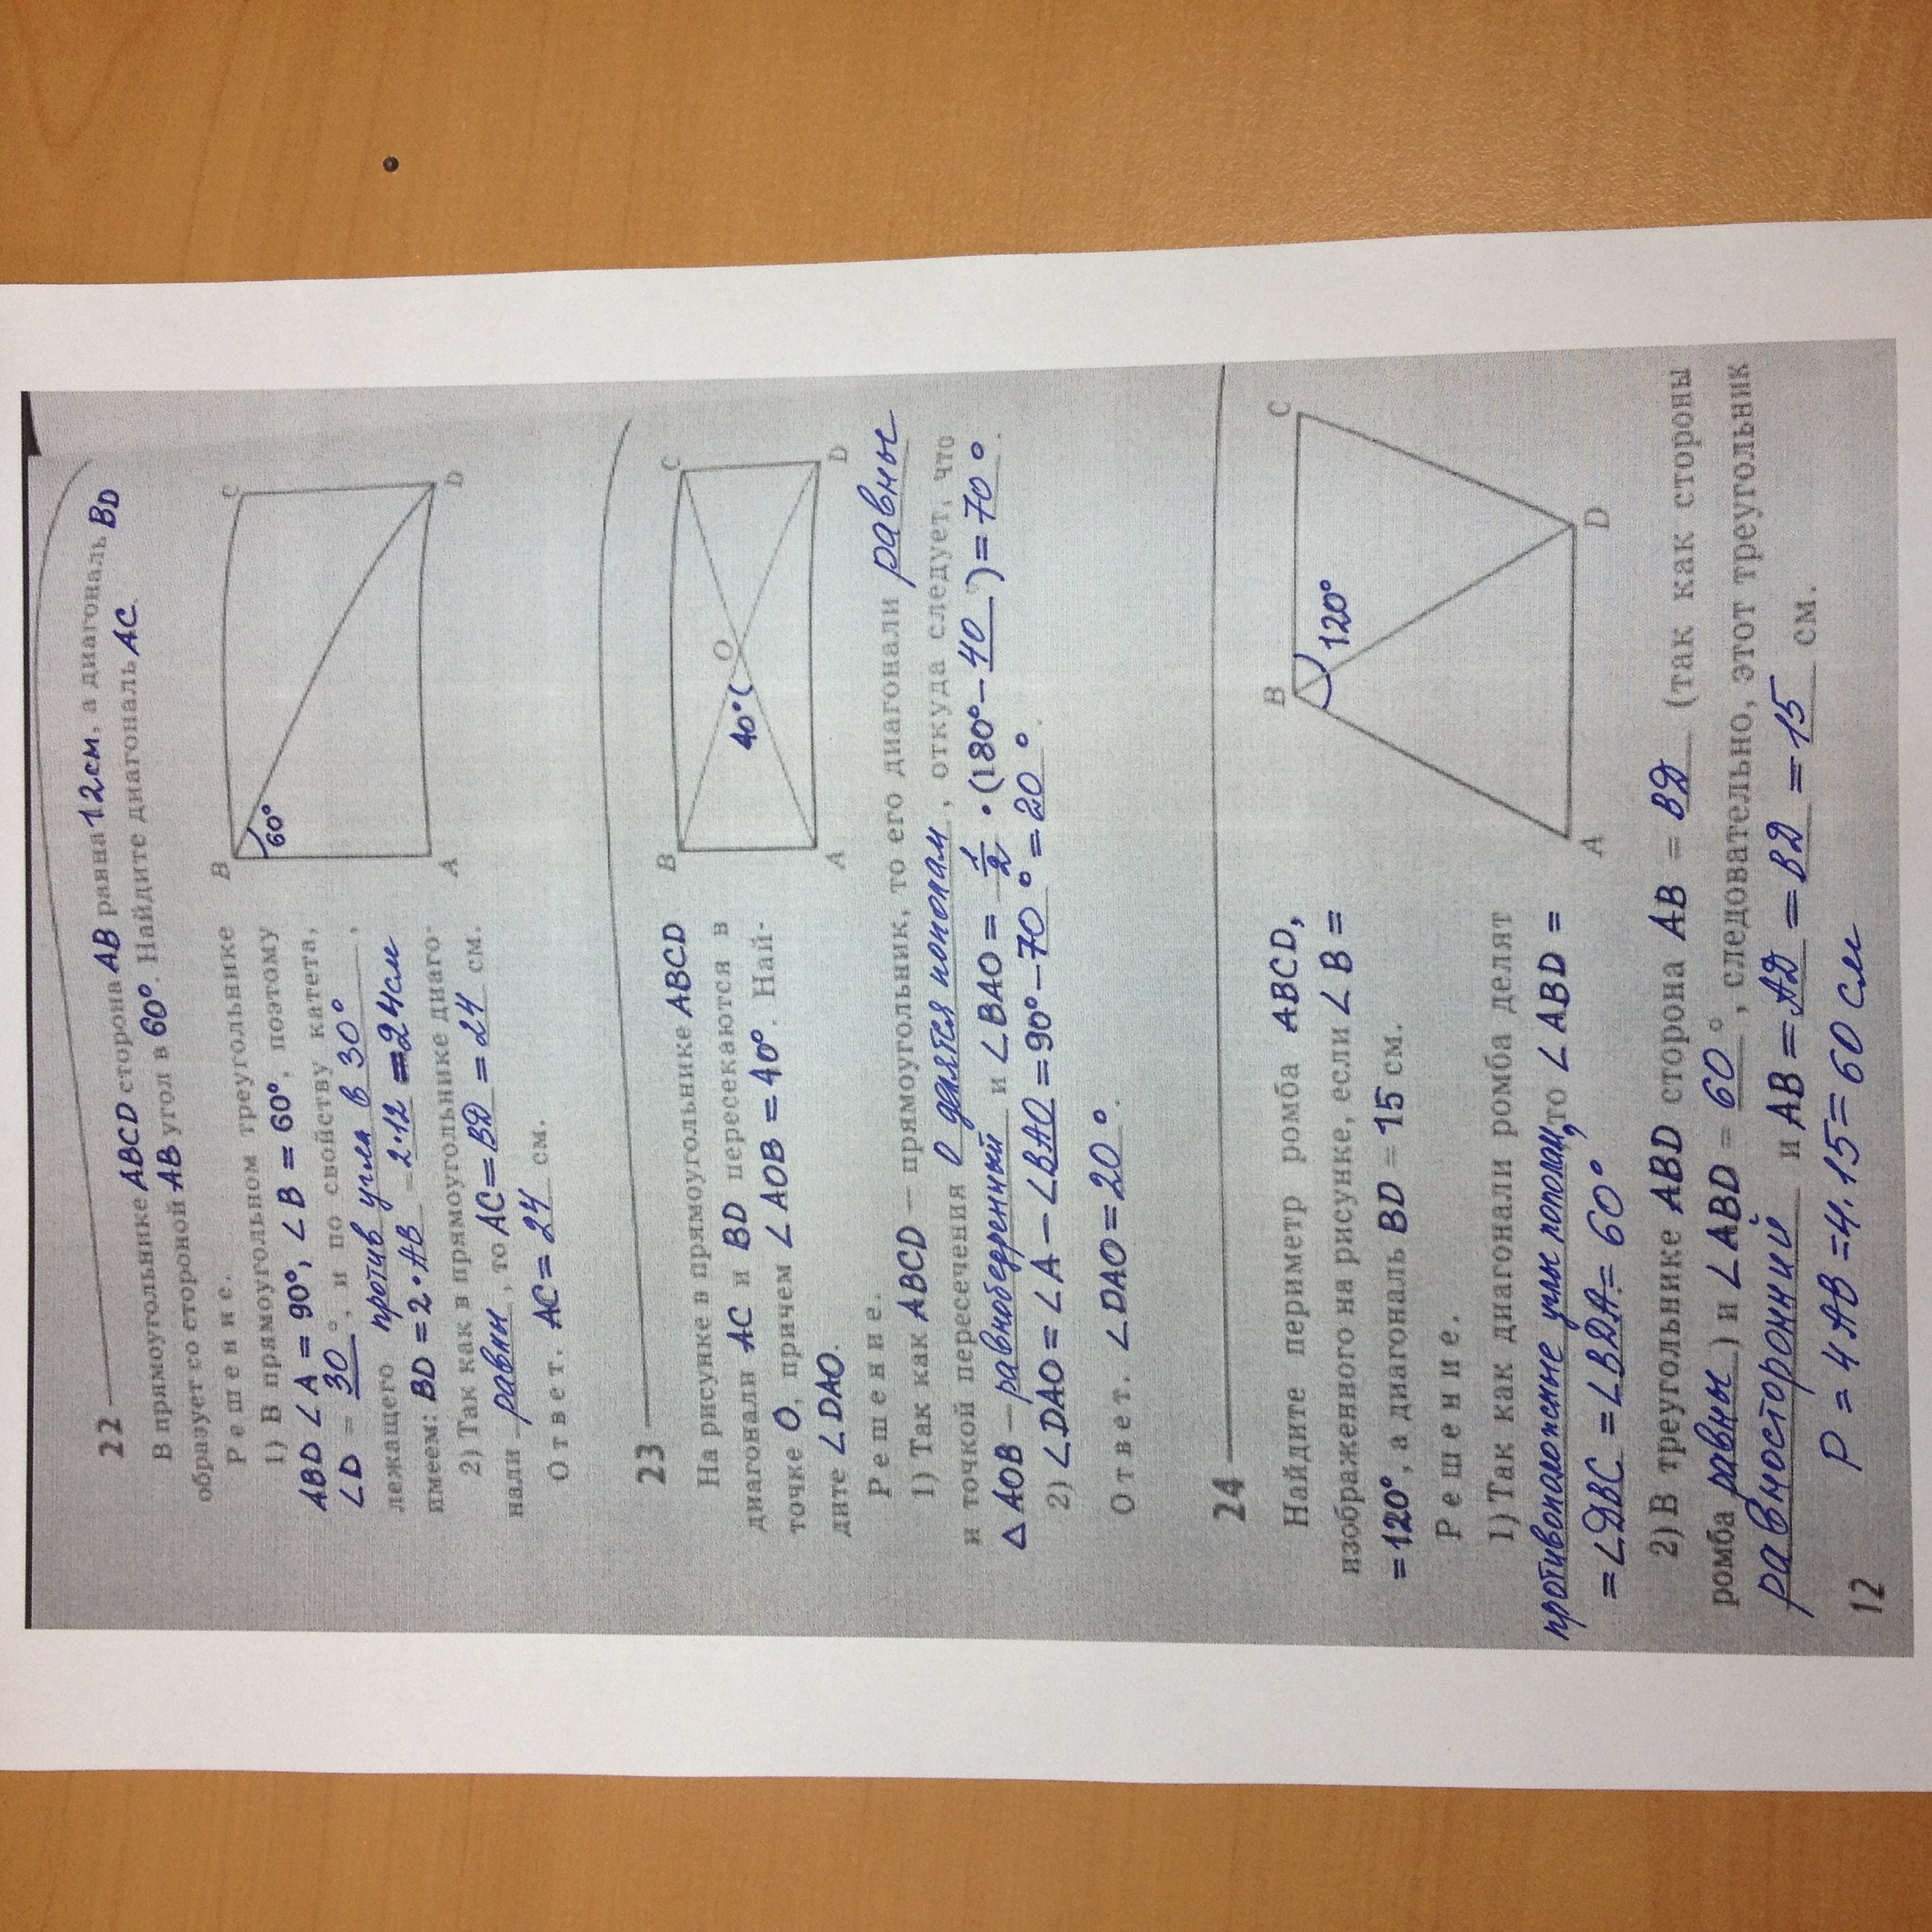 22
В прямоугольнике ABCD сторона AB равна 12см, а диагональ BD
образует со стороной AB угол в 60°. Найдите диагональ AC.
Решение.
1) В прямоугольном треугольнике
ABD ∠A = 90°, ∠B = 60°, поэтому
∠D = 30°, и по свойству катета,
лежащего против угла в 30°,
имеем: BD = 2·AB = 2·12 = 24см
2) Так как в прямоугольнике диаго-
нали равны, то AC = BD = 24 см.
Ответ. AC = 24 см.
B
C
60°
A
D
23
На рисунке в прямоугольнике ABCD
диагонали AC и BD пересекаются в
точке O, причем ∠AOB = 40°. Най-
дите ∠DAO.
B
C
40°
O
A
D
Решение.
1) Так как ABCD — прямоугольник, то его диагонали равны
и точкой пересечения O делятся пополам, откуда следует, что
△AOB — равнобедренный и ∠BAO = 1/2 · (180° − 40°) = 70°.
2) ∠DAO = ∠A − ∠BAO = 90° − 70° = 20°.
Ответ. ∠DAO = 20°.
24
Найдите периметр ромба ABCD,
изображенного на рисунке, если ∠B =
= 120°, а диагональ BD = 15 см.
Решение.
1) Так как диагонали ромба делят
противоположные углы пополам, то ∠ABD =
= ∠DBC = ∠BDA = 60°
B
C
120°
A
D
2) В треугольнике ABD сторона AB = BD (так как стороны
ромба равны) и ∠ABD = 60°, следовательно, этот треугольник
равносторонний и AB = AD = BD = 15 см.
P = 4AB = 4·15 = 60 см
12